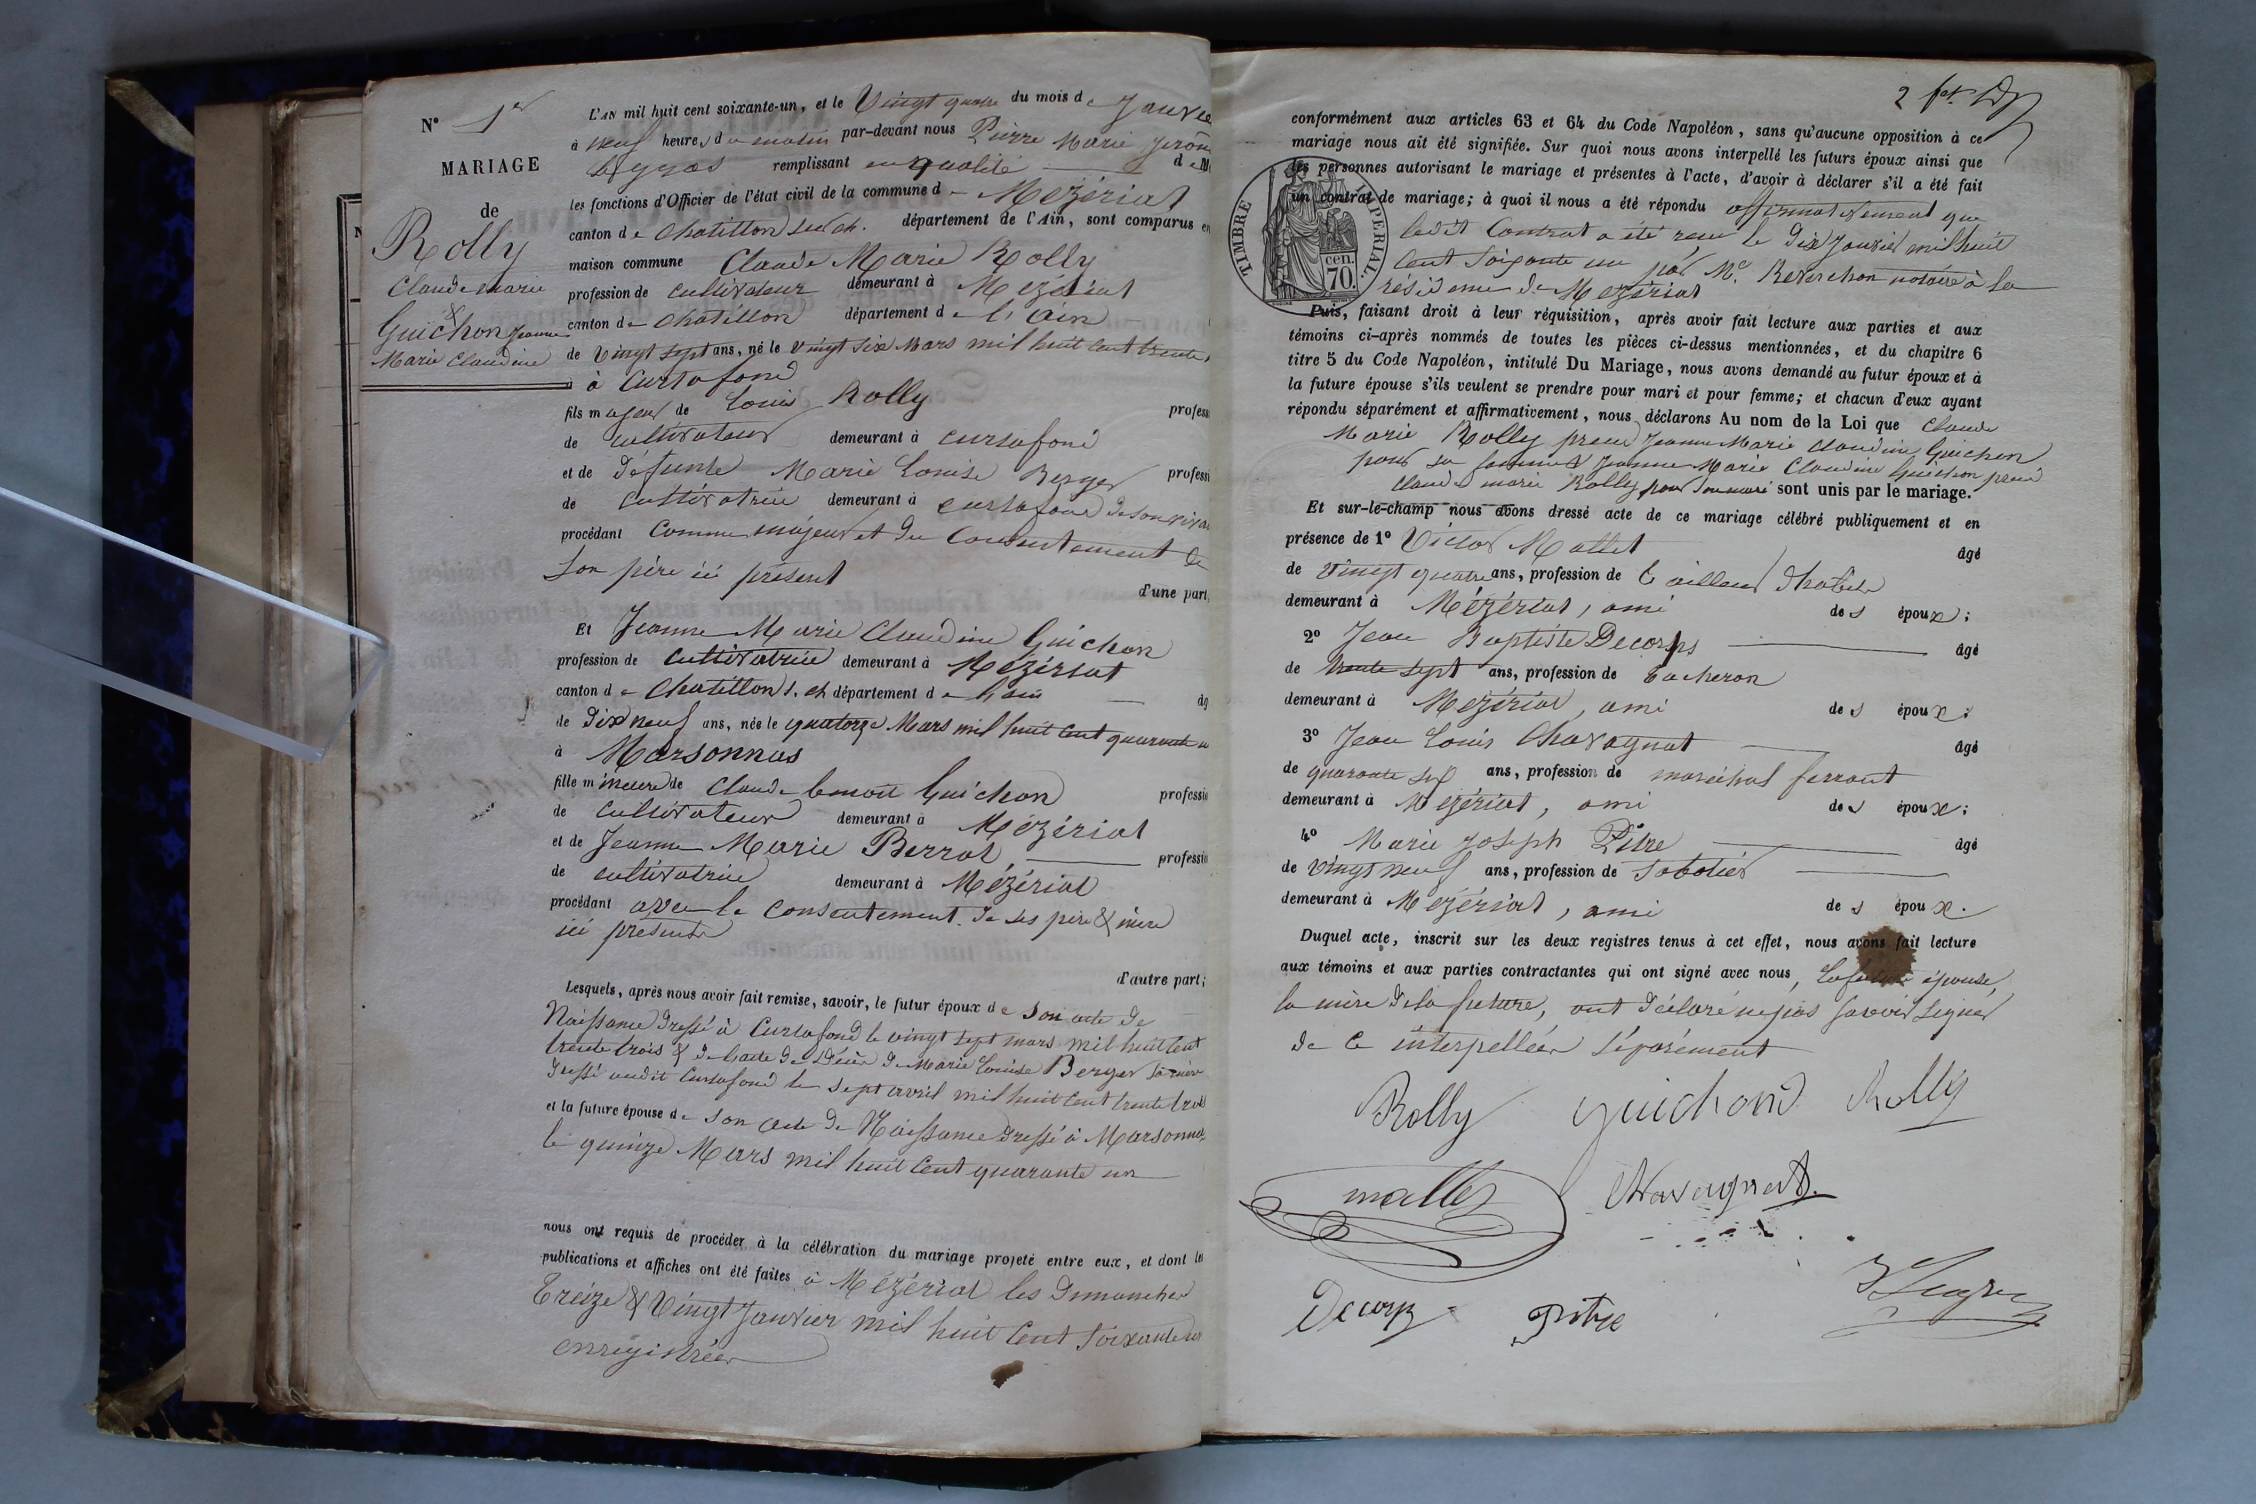 N° 1er
MARIAGE
de
Rolly
Claude Marie
&
Guichon Jeanne
Marie Claudine
L'AN mil huit cent soixante-un, et le Vingt quatre du mois de Janvie
à neuf heures du matin par-devant nous Pierre Marie Jérôm
Legras remplissant en qualité d
les fonctions d'Officier de l'état civil de la commune de Mézériat
canton de Chatillon sur ch. département de l'Ain, sont comparus en
maison commune Claude Marie Rolly
profession de cultivateur demeurant à Mézériat
canton de Chatillon département de l'Ain
de vingt sept ans, né le vingt six Mars mil huit cent trente
à Curtafond
fils majeur de Louis Rolly profess
de cultivateur demeurant à curtafond
et de défunte Marie Louise Berger professi
de cultivatrice demeurant à curtafond de son viva
procédant comme majeur et du consentement de
son père ici présent
d'une part,
Et Jeanne Marie Claudine Guichon
profession de cultivatrice demeurant à Mézériat
canton de Chatillon s. ch département de l'ain âg
de Dix neuf ans, née le quatorze Mars mil huit cent quarante u
à Marsonnas
fille mineure de Claude benoit Guichon professio
de cultivateur demeurant à Mézériat
et de Jeanne Marie Berrot professio
de cultivatrice demeurant à Mézériat
procédant avec le consentement de ses père & mère
ici présents
d'autre part;
Lesquels, après nous avoir fait remise, savoir, le futur époux de son acte de
Naissance dressé à Curtafond le vingt sept mars mil huit cent
trente trois & de l'acte de Décès de Marie Louise Berger sa mère
dressé audit Curtafond le sept avril mil huit cent trente trois
et la future épouse de son acte de Naissance dressé à Marsonnas
le quinze Mars mil huit cent quarante un
nous ont requis de procéder à la célébration du mariage projeté entre eux, et dont les
publications et affiches ont été faites à Mézériat les Dimanches
Treize & Vingt Janvier mil huit cent soixante un
enregistrées
2 fet
conformément aux articles 63 et 64 du Code Napoléon, sans qu'aucune opposition à ce
mariage nous ait été signifiée. Sur quoi nous avons interpellé les futurs époux ainsi que
les personnes autorisant le mariage et présentes à l'acte, d'avoir à déclarer s'il a été fait
un contrat de mariage; à quoi il nous a été répondu affirmativement que
ledit Contrat a été reçu le Dix Janvier mil huit
cent soixante un par Me Reverchon notaire à la
résidence de Mézériat
TIMBRE IMPERIAL.
cen.
70.
Puis, faisant droit à leur réquisition, après avoir fait lecture aux parties et aux
témoins ci-après nommés de toutes les pièces ci-dessus mentionnées, et du chapitre 6
titre 5 du Code Napoléon, intitulé Du Mariage, nous avons demandé au futur époux et à
la future épouse s'ils veulent se prendre pour mari et pour femme; et chacun d'eux ayant
répondu séparément et affirmativement, nous déclarons Au nom de la Loi que Claude
Marie Rolly prend Jeanne Marie Claudine Guichon
pour sa femme & Jeanne Marie Claudine Guichon prend
claude marie Rolly pour son mari sont unis par le mariage.
Et sur-le-champ nous avons dressé acte de ce mariage célébré publiquement et en
présence de 1° Victor Mallet âgé
de vingt quatre ans, profession de Tailleur d'habits
demeurant à Mézériat, ami des époux;
2° Jean Baptiste Decorps âgé
de trente sept ans, profession de Tacheron
demeurant à Mézériat, ami des époux;
3° Jean Louis Chavagnat âgé
de quarante six ans, profession de maréchal ferrant
demeurant à Mézériat, ami des époux;
4° Marie Joseph Pitre âgé
de vingt neuf ans, profession de sabotier
demeurant à Mézériat, ami des époux.
Duquel acte, inscrit sur les deux registres tenus à cet effet, nous avons fait lecture
aux témoins et aux parties contractantes qui ont signé avec nous, la future épouse,
la mère de la future, ont déclaré ne pas savoir signer
de ce interpellées séparément
Rolly Guichond Rolly
mallet Chavagnat
Decorp Pitre